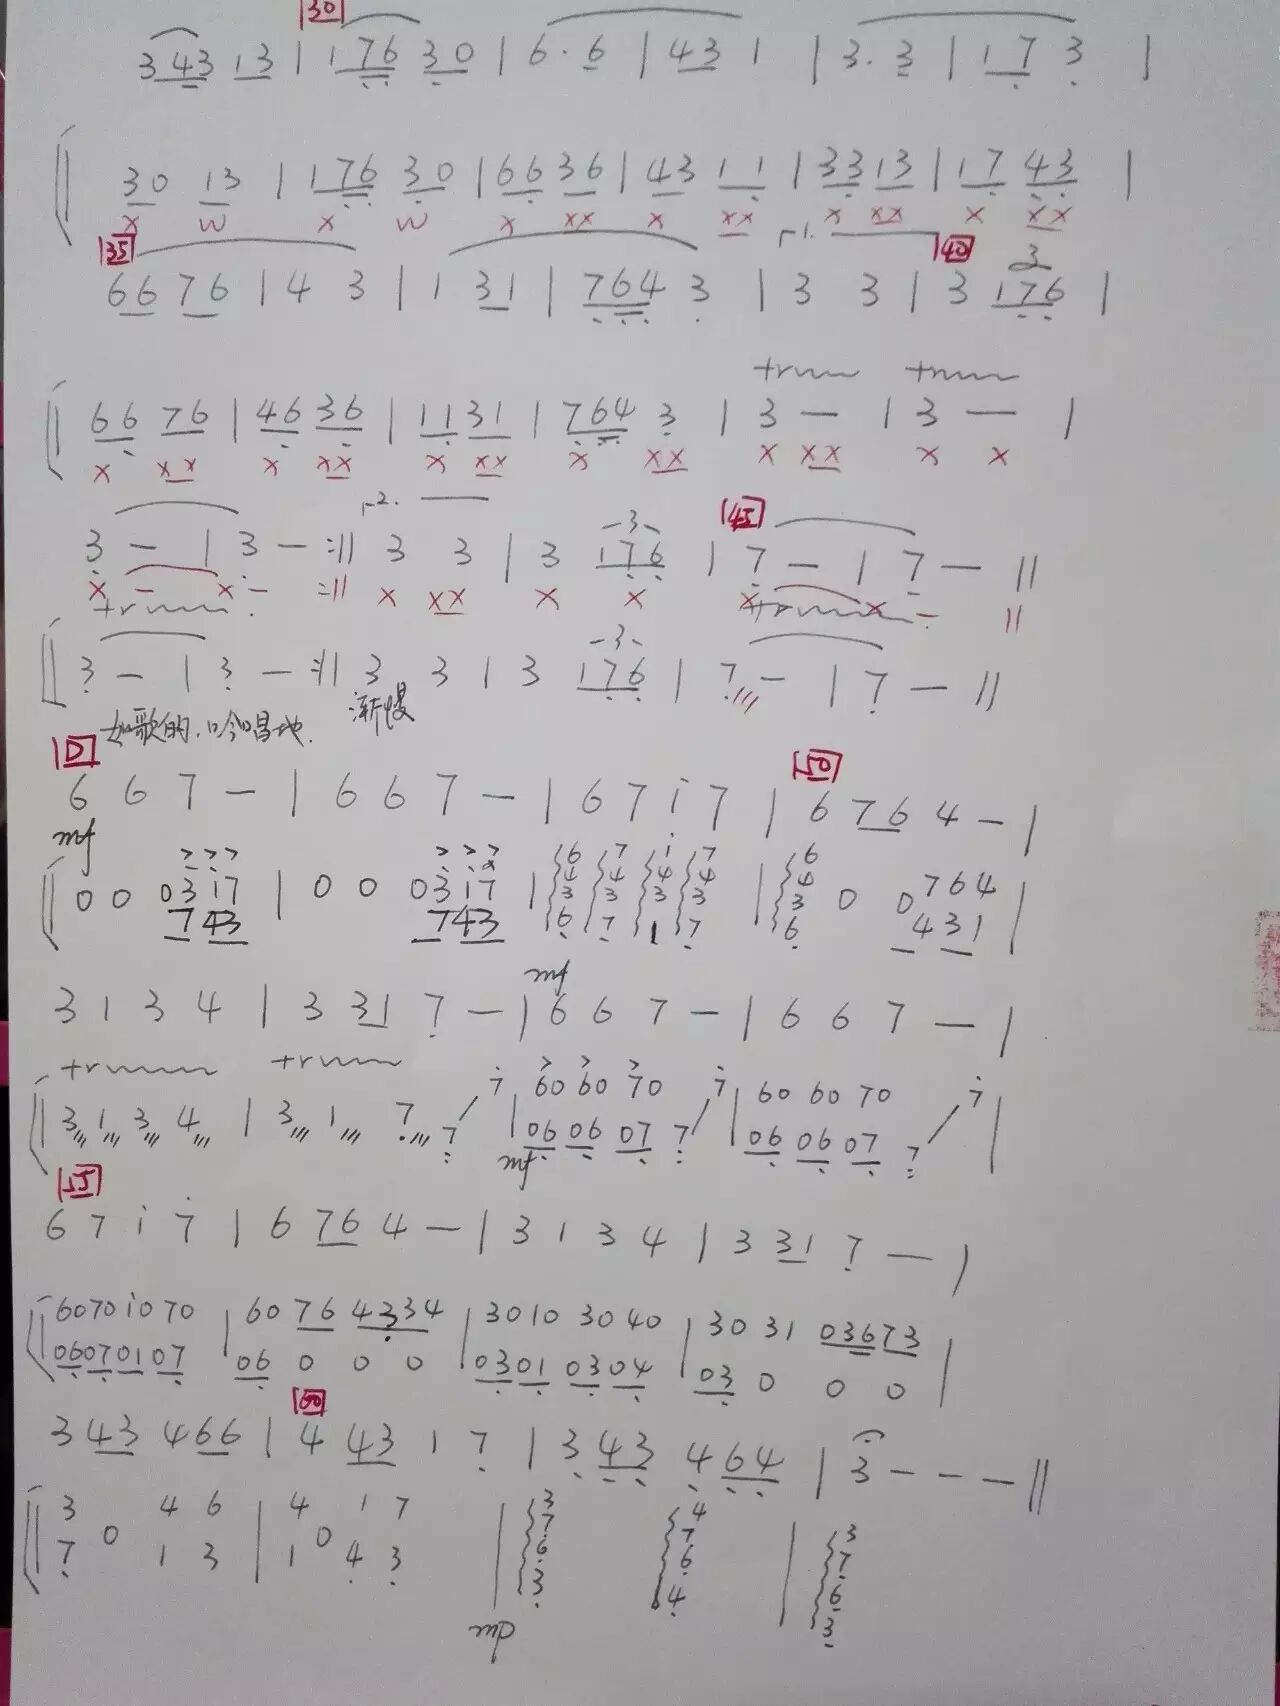 30
3 43 13 | 1 76 30 | 6· 6 | 43 1 | 3· 3 | 17 3 |
30 13 | 176 30 | 66 36 | 43 11 | 33 13 | 17 43 |
x w x w x xx x xx x xx x xx
35 1. 40
66 76 | 4 3 | 1 31 | 764 3 | 3 3 | 3 176 |
3
tr tr
66 76 | 46 36 | 11 31 | 764 3 | 3 — | 3 — |
x xx x xx x xx x xx x xx x x
2. 3 45
3 — | 3 — :|| 3 3 | 3 176 | 7 — | 7 — ||
x - x - :|| x xx x x x x - ||
tr tr
3
3 — | 3 — :|| 3 3 | 3 176 | 7 — | 7 — ||
如歌的.吟唱地. 渐慢
D 50
6 6 7 — | 6 6 7 — | 6 7 i 7 | 6 76 4 — |
mf
> > > > > >
0 0 0317 | 0 0 0317 | 6 7 1 7 | 6 0 0764
743 743 4 4 4 4 4 431
3 3 3 3 3
6 7 1 7 6
mf
3 1 3 4 | 3 31 7 — | 6 6 7 — | 6 6 7 — |
tr tr > > >
3 1 3 4 | 3 1 7 7 7 | 60 60 70 7 | 60 60 70 7 |
06 06 07 7 06 06 07 7
mf
55
6 7 i 7 | 6 76 4 — | 3 1 3 4 | 3 31 7 — |
60 70 i0 70 | 60 76 43 34 | 30 10 30 40 | 30 31 03673 |
06 07 01 07 06 0 0 0 03 01 03 04 03 0 0 0
60
3 43 4 66 | 4 43 1 7 | 3 43 4 64 | 3 - - - ||
3 0 4 6 | 4 0 1 7 | 3 4 | 3
7 1 3 1 4 3 7 7 7
6 6 6
3 4 3
mp